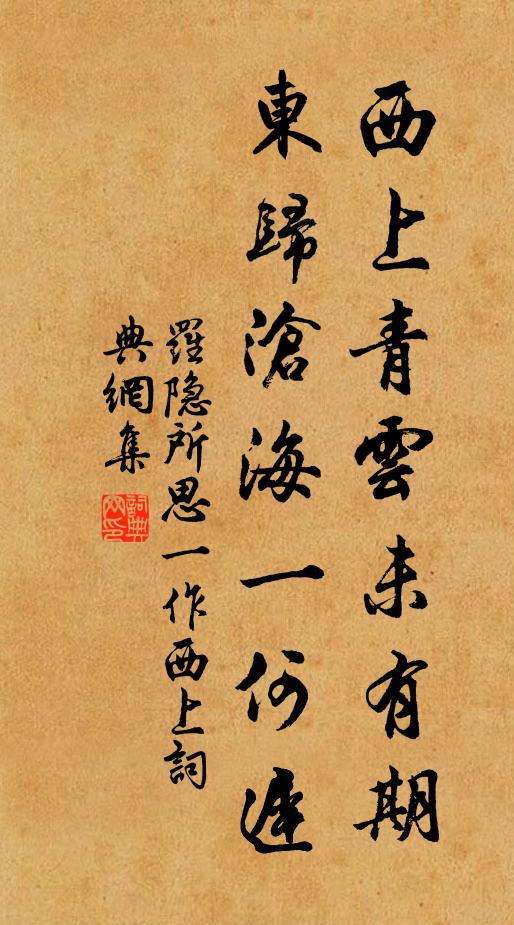 西上青雲未有期
東歸滄海一何遲
羅隐所思一作西上詞
典網集
詞典网印